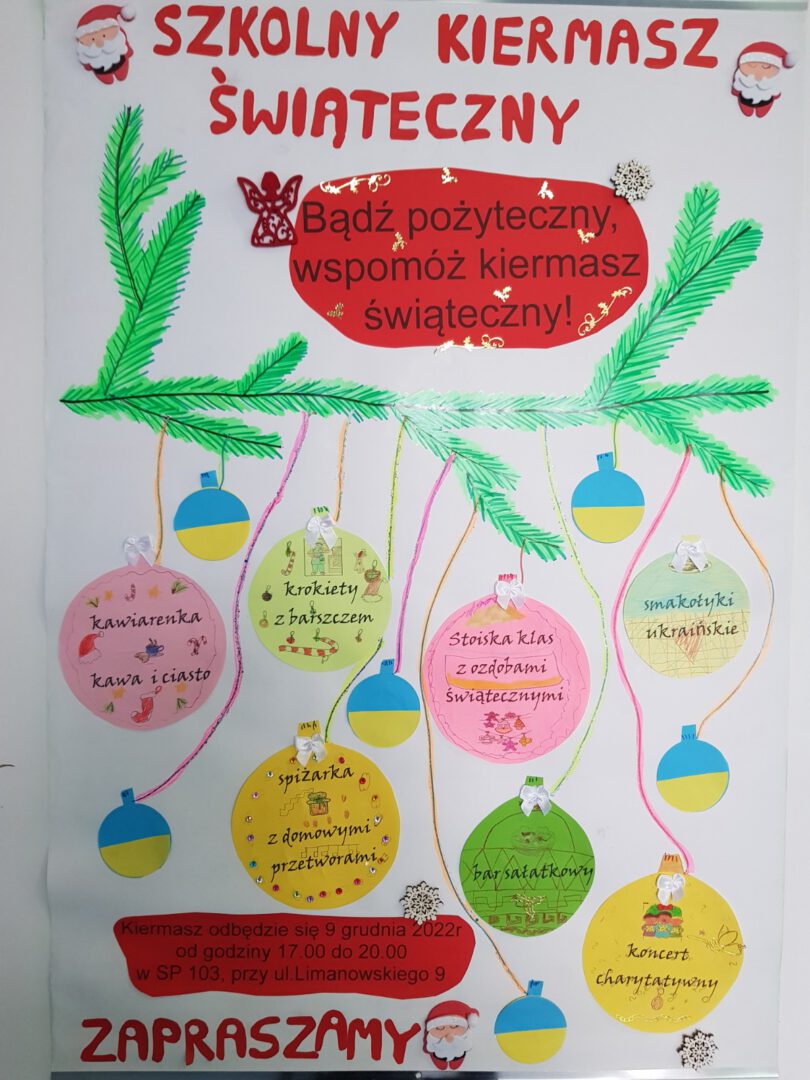 SZKOLNY KIERMASZ
ŚWIĄTECZNY
Bądź pożyteczny,
wspomóż kiermasz
świąteczny!
kawiarenka
kawa i ciasto
krokiety
z barszczem
Stoiska klas
z ozdobami
świątecznymi
smakołyki
ukraińskie
spiżarka
z domowymi
przetworami
bar sałatkowy
koncert
charytatywny
Kiermasz odbędzie się 9 grudnia 2022r
od godziny 17.00 do 20.00
w SP 103, przy ul.Limanowskiego 9
ZAPRASZAMY